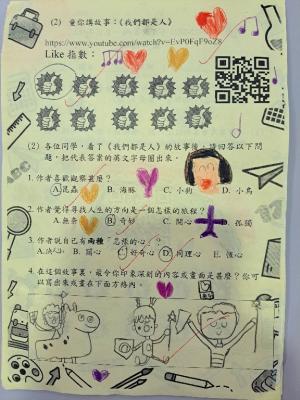 (2) 童你講故事：《我們都是人》
https://www.youtube.com/watch?v=EvP0FqF9oZ8
Like 指數：
(2) 各位同學，看了《我們都是人》的故事後，請回答以下問
題，把代表答案的英文字母圈出來。
1. 作者喜歡觀察甚麼？
A.昆蟲 B. 海豚 C. 小狗 D. 小鳥
2. 作者覺得尋找人生的方向是一個怎樣的旅程？
A.無奈 B.奇妙 C. 開心 D. 孤獨
3. 作者說自己有兩種怎樣的心？
A.決心 B. 關心 C.好奇心 D.同理心 E. 恆心
4. 在這個故事裏，最令你印象深刻的內容或畫面是甚麼？你可
以寫出來或畫在下面方格內。